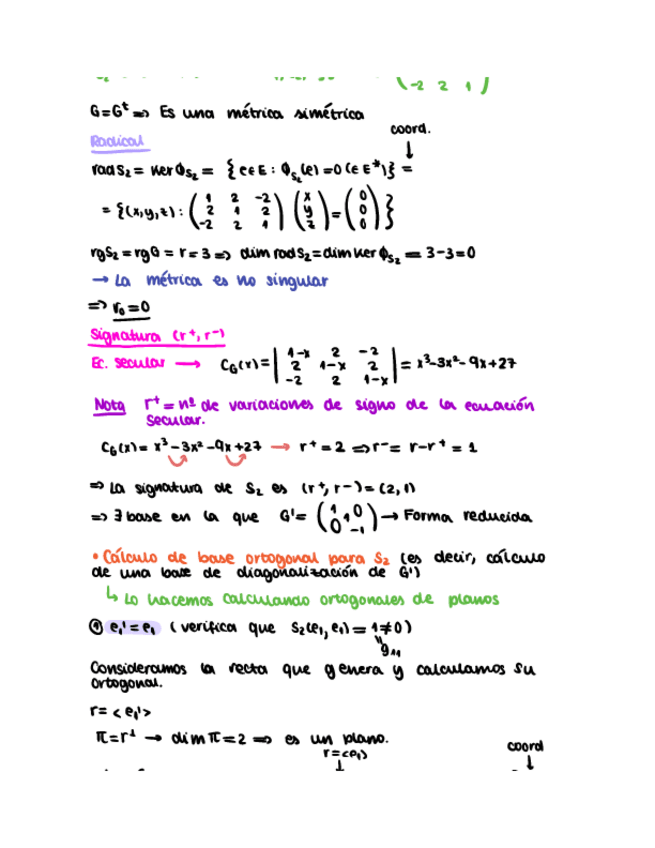 (-2 2 1)
G=Gᵗ => Es una métrica simétrica
coord.
Radical
rad S₂ = ker ϕ_S₂ = {e∈E : ϕ_S₂(e)=0(∈E*)} =
= {(x,y,z) : (1 2 -2; 2 1 2; -2 2 1) (x; y; z) = (0; 0; 0)}
rg S₂ = rg G = r = 3 => dim rad S₂ = dim ker ϕ_S₂ = 3-3=0
→ La métrica es no singular
=> r₀=0
Signatura (r⁺, r⁻)
Ec. secular → C_G(x) = |1-x 2 -2; 2 1-x 2; -2 2 1-x| = x³-3x²-9x+27
Nota r⁺ = nº de variaciones de signo de la ecuación
secular.
C_G(x) = x³-3x²-9x+27 → r⁺=2 => r⁻ = r-r⁺ = 1
=> La signatura de S₂ es (r⁺, r⁻) = (2,1)
=> ∃ base en la que G' = (1 1 0; 0 -1) → Forma reducida
• Cálculo de base ortogonal para S₂ (es decir, cálculo
de una base de diagonalización de G')
↳ Lo hacemos calculando ortogonales de planos
① e₁' = e₁ (verifica que S₂(e₁,e₁) = 1≠0)
" g₁₁
Consideramos la recta que genera y calculamos su
ortogonal.
r = <e₁'>
π=r⊥ → dim π=2 => es un plano.
r=<e₁> coord